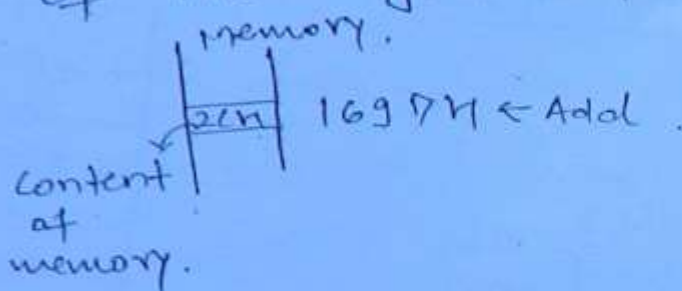 memory.
2CH 1697H ← Add
content
of
memory.